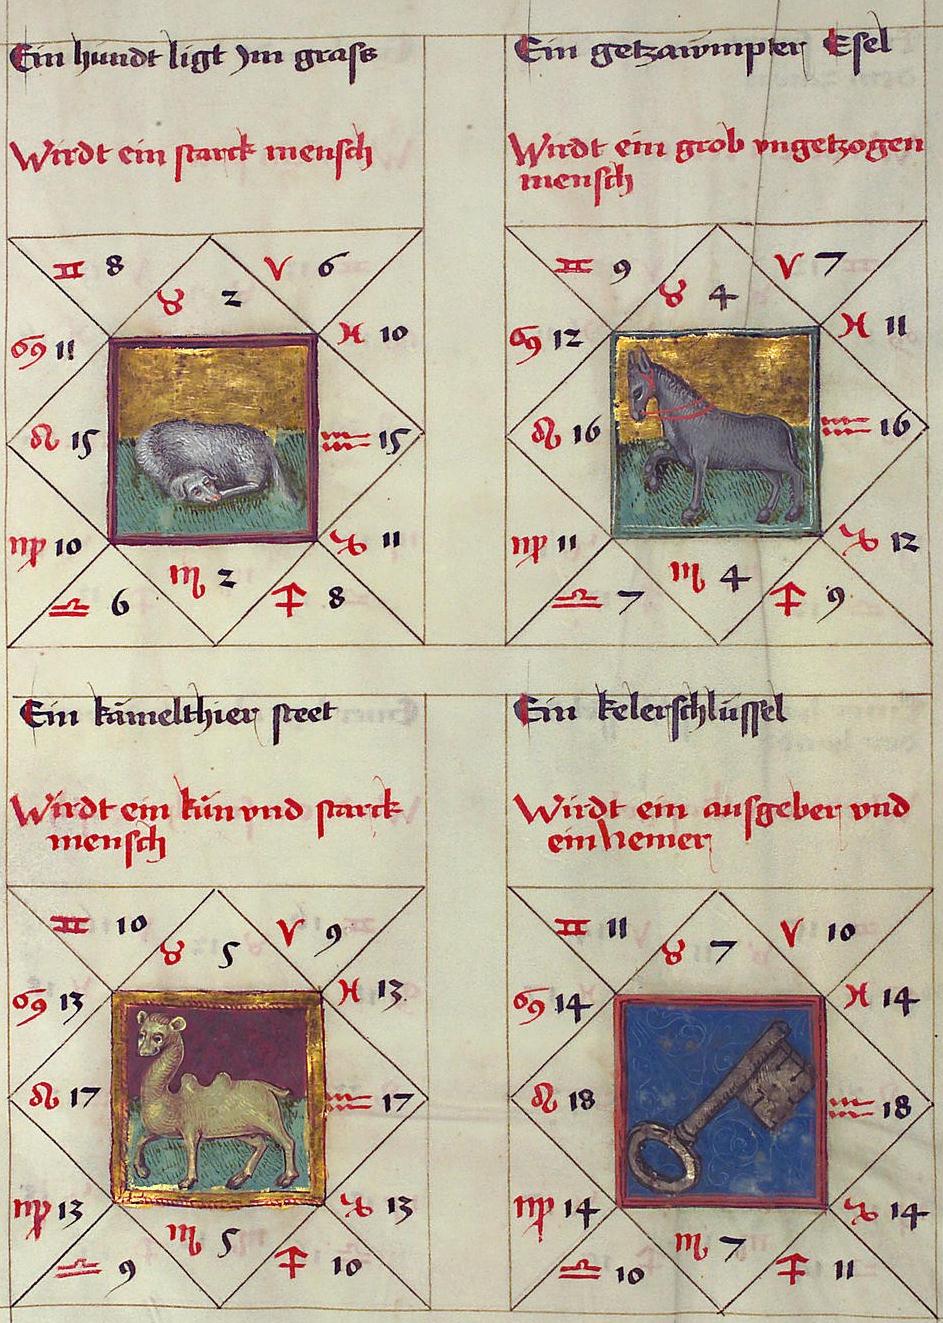 Ein hundt ligt Im grass
Wirdt ein starck mensch
♊ 8
♉ 2
♈ 6
♋ 11
♓ 10
♌ 15
♒ 15
♍ 10
♑ 11
♎ 6
♏ 2
♐ 8
Ein getzawmpter Esel
Wirdt ein grob vngetzogen
mensch
♊ 9
♉ 4
♈ 7
♋ 12
♓ 11
♌ 16
♒ 16
♍ 11
♑ 12
♎ 7
♏ 4
♐ 9
Ein kämelthier steet
Wirdt ein kün vnd starck
mensch
♊ 10
♉ 5
♈ 9
♋ 13
♓ 13
♌ 17
♒ 17
♍ 13
♑ 13
♎ 9
♏ 5
♐ 10
Ein kelerschlüssel
Wirdt ein ausgeber vnd
ein Nemer
♊ 11
♉ 7
♈ 10
♋ 14
♓ 14
♌ 18
♒ 18
♍ 14
♑ 14
♎ 10
♏ 7
♐ 11